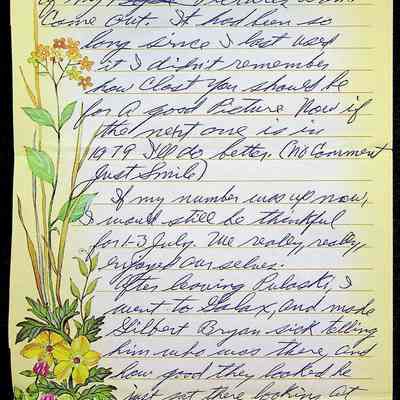 of my Pictures
Come Out. It had been so
long since I last used
it I didn't remember
how Clost you should be
for a good Picture. Now if
the next one is in
1979 I'll do better. (No Comment
Just Smile)
If my number was up now,
I would still be thankful
for 1-3 July. We really, really,
enjoyed ourselves.
After leaving Pulaski, I
went to Galax, and make
Gilbert Bryan sick telling
him who was there, and
how good they looked. He
just sat there looking at